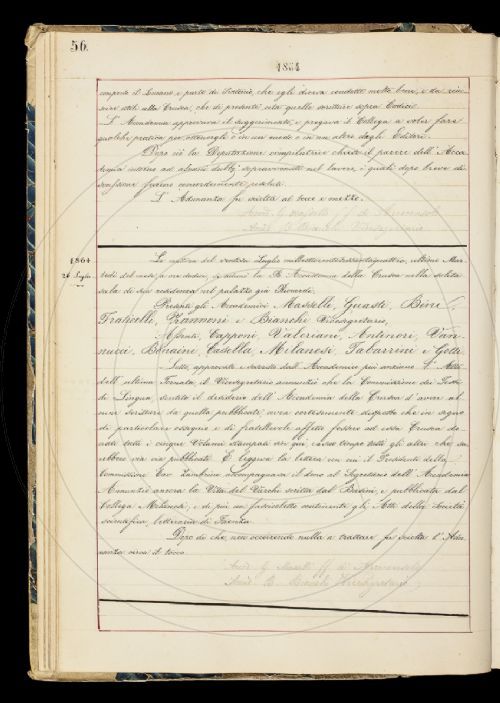 56.
1864
composto il Lucano, e parte da Potterio, che egli diceva condotte molto bene, e da riu-
scire utili alla Crusca, che di presente cita quelle scritture sopra Codici.
L'Accademia approvava il suggerimento, e pregava il Collega a voler fare
qualche pratica per ottenergli o in un modo o in un altro dagli Editori.
Dopo ciò la Deputazione compilatrice chiede il parere dell'Acca-
demia intorno ad alcuni dubbj sopravvenuti nel lavoro, i quali dopo breve di-
scussione furono concordemente risoluti.
L'Adunanza fu sciolta al tocco e mezzo.
Accad. G. Masselli ff. di Arciconsolo
Accad. B. Bianchi Vicesegretario
1864
26 Luglio
La mattina del ventisei Luglio milleottocentosessantaquattro, ultimo Mar-
tedì del mese, a ore dodici, si adunò la R. Accademia della Crusca nella solita
sala di sua residenza nel palazzo già Riccardi.
Presenti gli Accademici Masselli, Guasti, Bini,
Fraticelli, Zannoni e Bianchi Vicesegretario,
Assenti, Capponi, Valeriani, Antinori, Van-
nucci, Bonaini, Casella, Milanesi, Tabarrini e Gotti.
Letto, approvato e firmato dall'Accademico più anziano l'Atto
dell'ultima Tornata, il Vicesegretario annunziò che la Commissione dei Testi
di Lingua, sentito il desiderio dell'Accademia della Crusca d'avere al-
cune scritture da quella pubblicate, avea cortesemente disposto che in segno
di particolare ossequio e di fratellevole affetto fossero ad essa Crusca do-
nati tutti i cinque Volumi stampati sin qui, e a suo tempo tutti gli altri che sa-
rebbero via via pubblicati. E leggeva la lettera con cui il Presidente della
Commissione Cav. Zambrini accompagnava il dono al Segretario dell'Accademia.
Annunziò ancora la Vita del Varchi scritta dal Busini, e pubblicata dal
Collega Milanesi, e di più un fascicoletto contenente gli Atti della Società
scientifica, letteraria di Faenza.
Dopo di che, non occorrendo nulla a trattare fu sciolta l'Adu-
nanza circa il tocco.
Accad. G. Masselli ff. di Arciconsolo
Accad. B. Bianchi Vicesegretario